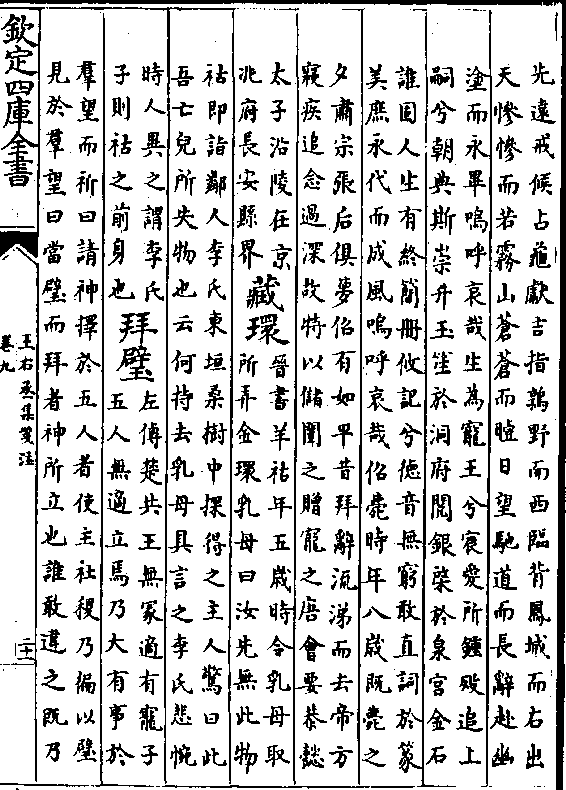 光遠戒候占龜獻吉指鶉野而西臨背鳳城而右出
天慘慘而若霧山蒼蒼而曀日望馳道而長辭赴幽
塗而永畢嗚呼哀哉生為寵王兮裒愛所鍾歿追上
嗣兮朝典斯崇升玉笙於洞府閟銀棨於泉宮金石
誰固人生有終簡冊攸記兮德音無窮敢直詞於篆
美庶永代而成風嗚呼哀哉佋薨時年八歲既薨之
夕肅宗張后俱夢佋有如平昔拜辭流涕而去帝方
寢疾追念過深故特以儲闈之贈寵之唐會要恭懿
太子沿陵在京
兆府長安縣界
藏環
晉書羊祜年五歲時令乳母取
所弄金環乳母曰汝先無此物
祜即詣鄰人李氏東垣桑樹中探得之主人驚曰此
吾亡兒所失物也云何持去乳母具言之李氏悲惋
時人異之謂李氏
子則祜之前身也
拜璧
左傳楚共王無冢適有寵子
五人無適立焉乃大有事於
羣望而祈曰請神擇於五人者使主社稷乃徧以璧
見於羣望曰當璧而拜者神所立也誰敢違之既乃
欽定四庫全書
王右丞集箋注
卷九
二十一